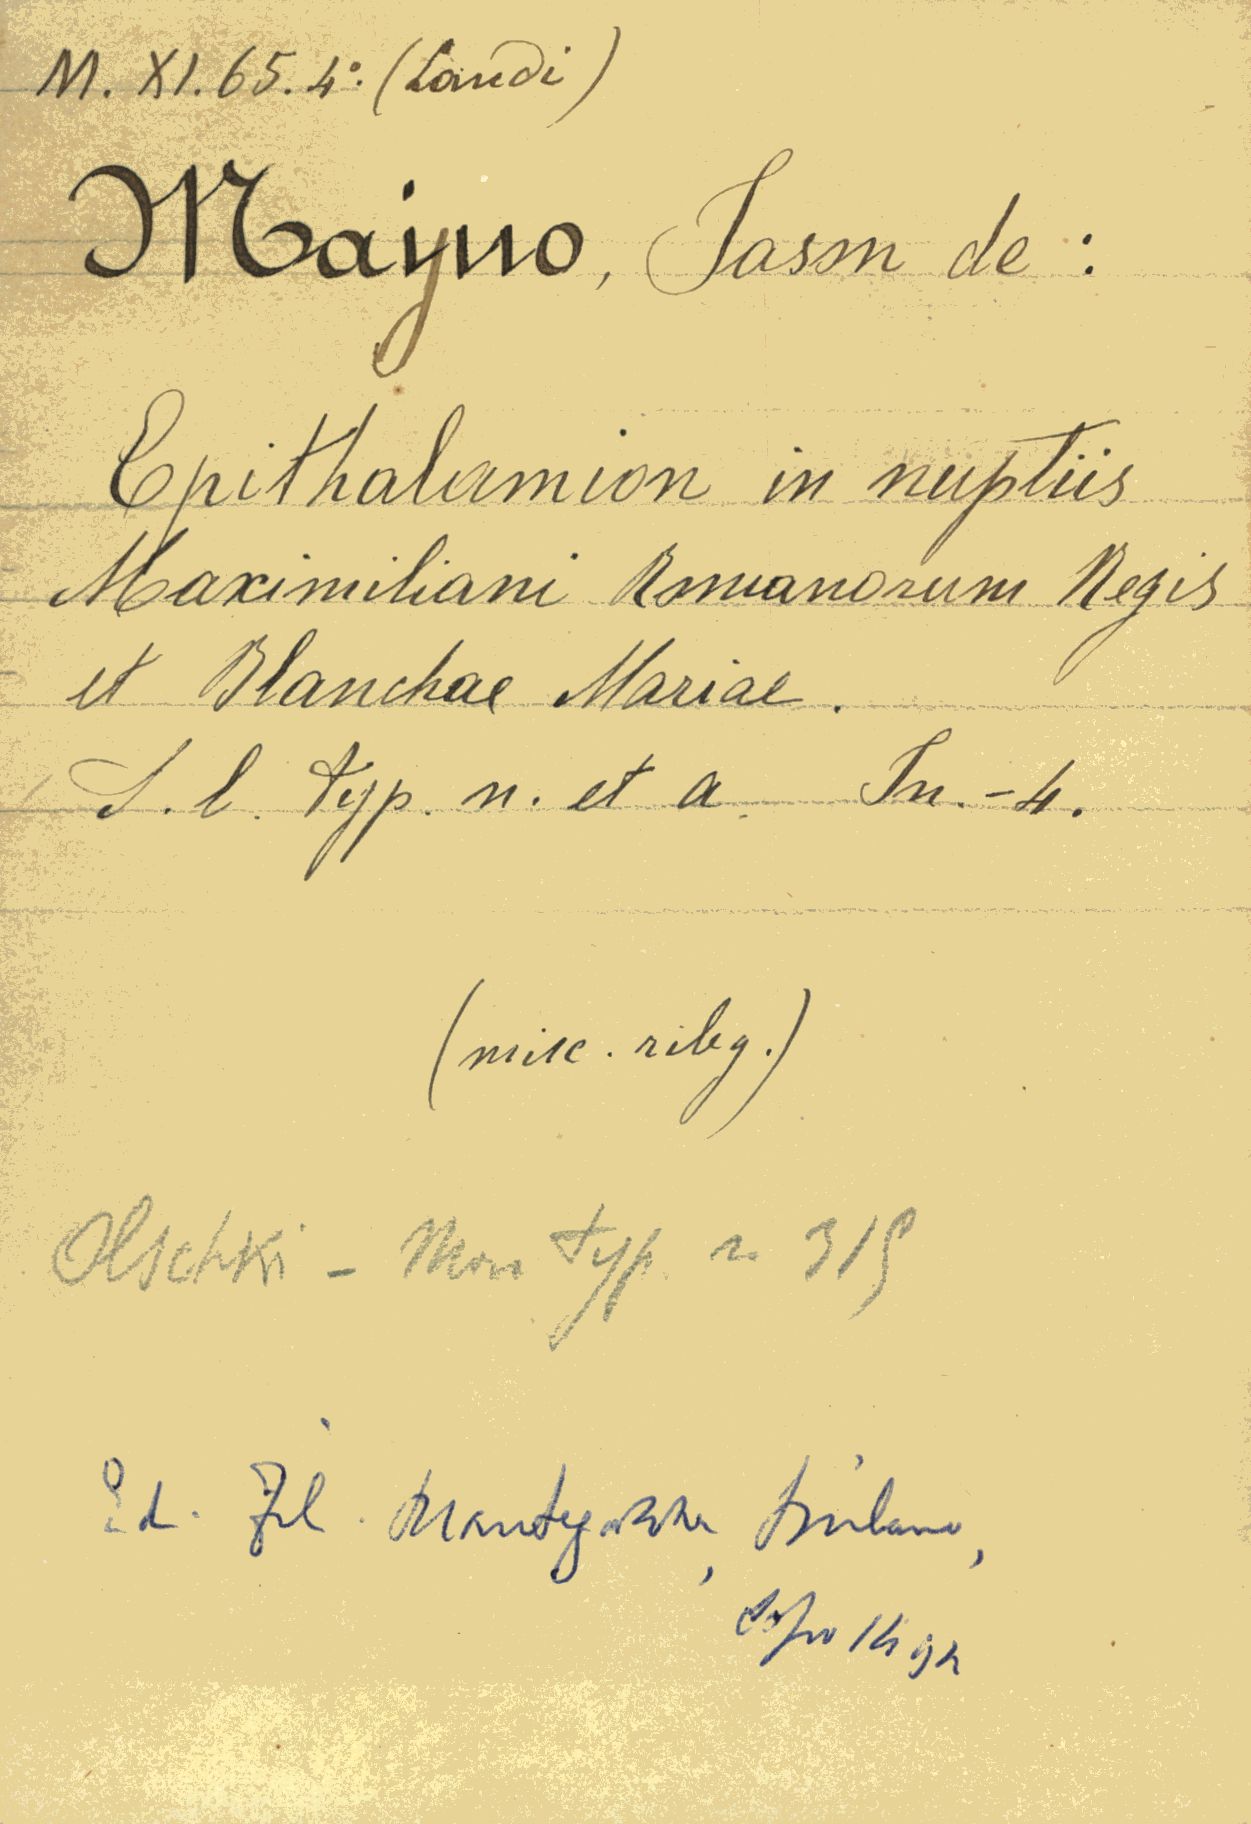 M. XI. 65. 4º. (Landi)
Mayno, Jason de :
Epithalamion in nuptiis
Maximiliani Romanorum Regis
et Blanchae Mariae.
S. l. typ. n. et a. In.-4.
(misc. rileg.)
Olschki - Mon typ. n. 319
Ed. Fil. Mantegatius, Milano,
dopo 149